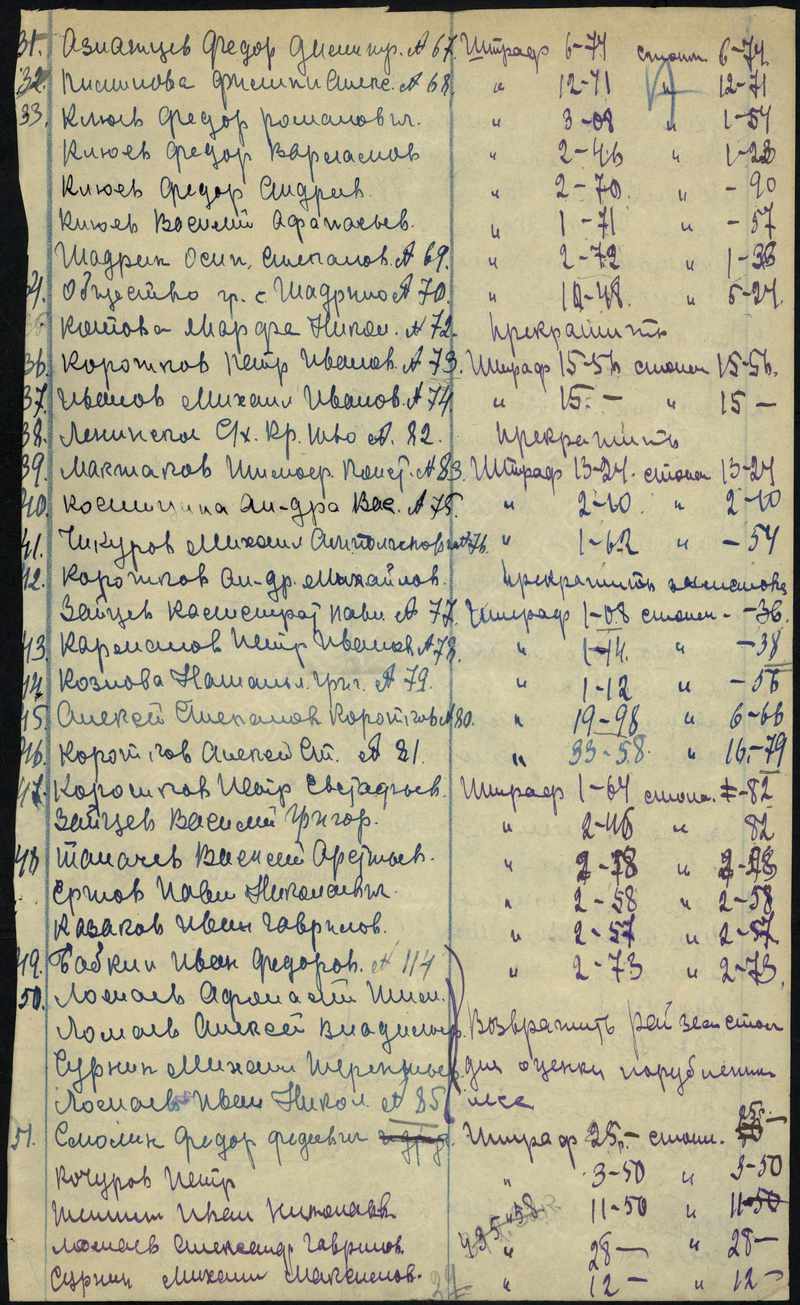 31. Азиатцев Федор Дмитр. А 67. Штраф 6-74 стоим. 6-74
32. Филипп Алекс. А 68. " 12-71 " 12-71
33. Клюев Федор Романович. " 3-08 " 1-54
Клюев Федор Варламов " 2-46 " 1-23
Клюев Федор Андреев. " 2-70 " - 90
Клюев Василий Афанасьев. " 1-71 " - 57
Шадрин Осип, Степанов. А 69. " 2-72 " 1-36
34. Общество гр. с Шадрино А 70. " 10-48. " 5-24
Котова Марфа Никол. А 72. прекратить
36. Коротков Петр Иванов. А 73. Штраф 15-56 стоим 15-56.
37. Иванов Михаил Иванов. А 74. " 15. — " 15 —
38. Ленинское С/х. Кр. т-во А. 82. прекратить
39. Макшаков Тимоф. Конст. А 83. Штраф 13-24. стоим 13-24
40. Ал-дра Вас. А 75. " 2-10 " 2-10
41. Чикуров Михаил А 76. " 1-62 " - 54
42. Коротков Ал-др. Михайлов. прекратить
Зайцев Калистрат Павл. А 77. Штраф 1-08 стоим - -36.
43. Карманов Петр Иванов. А 78. " 1-14. " -38
44. Козлова Наталья Григ. А 79. " 1-12 " -56
45. Алексей Степанов Коротков А 80. " 19-98 " 6-66
46. Коротков Алексей Ст. А 81. " 33-58. " 16-79
47. Коротков Петр Евстафьев. Штраф 1-64 стоим. -82
Зайцев Василий Григор. " 2-46 " 82
48 Василий Арефьев. " 2-28 " 2-28
Ершов Павел Николаевич. " 2-58 " 2-58
Казаков Иван Гаврилов. " 2-57 " 2-57
49. Бабкин Иван Федоров. А 114 " 2-73 " 2-73.
50. Ломаев Афонасий Тим.
Ломаев Алексей Владимир. Возвратить рай зем стол
Сурнин Михаил Терентьев. для оценки порубленного
Ломаев Иван Никол. А 85 леса
51. Смолин Федор Фадеевич Штраф 25р.- стоим. 25-
Кочуров Петр " 3-50 " 3-50
Иван Николаев " 11-50 " 11-50
Ломаев Александр Гаврилов. " 28 — " 28 —
Сурнин Михаил Максимов. " 12 — " 12 —